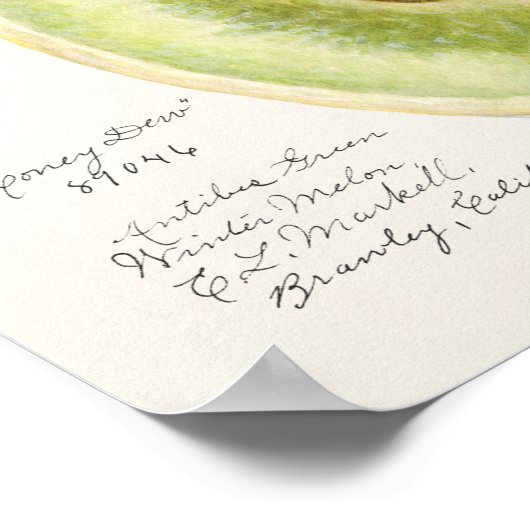 Coney Dew"
89046
Antibes Green
Winter Melon,
E. L. Markell,
Brawley, Calif